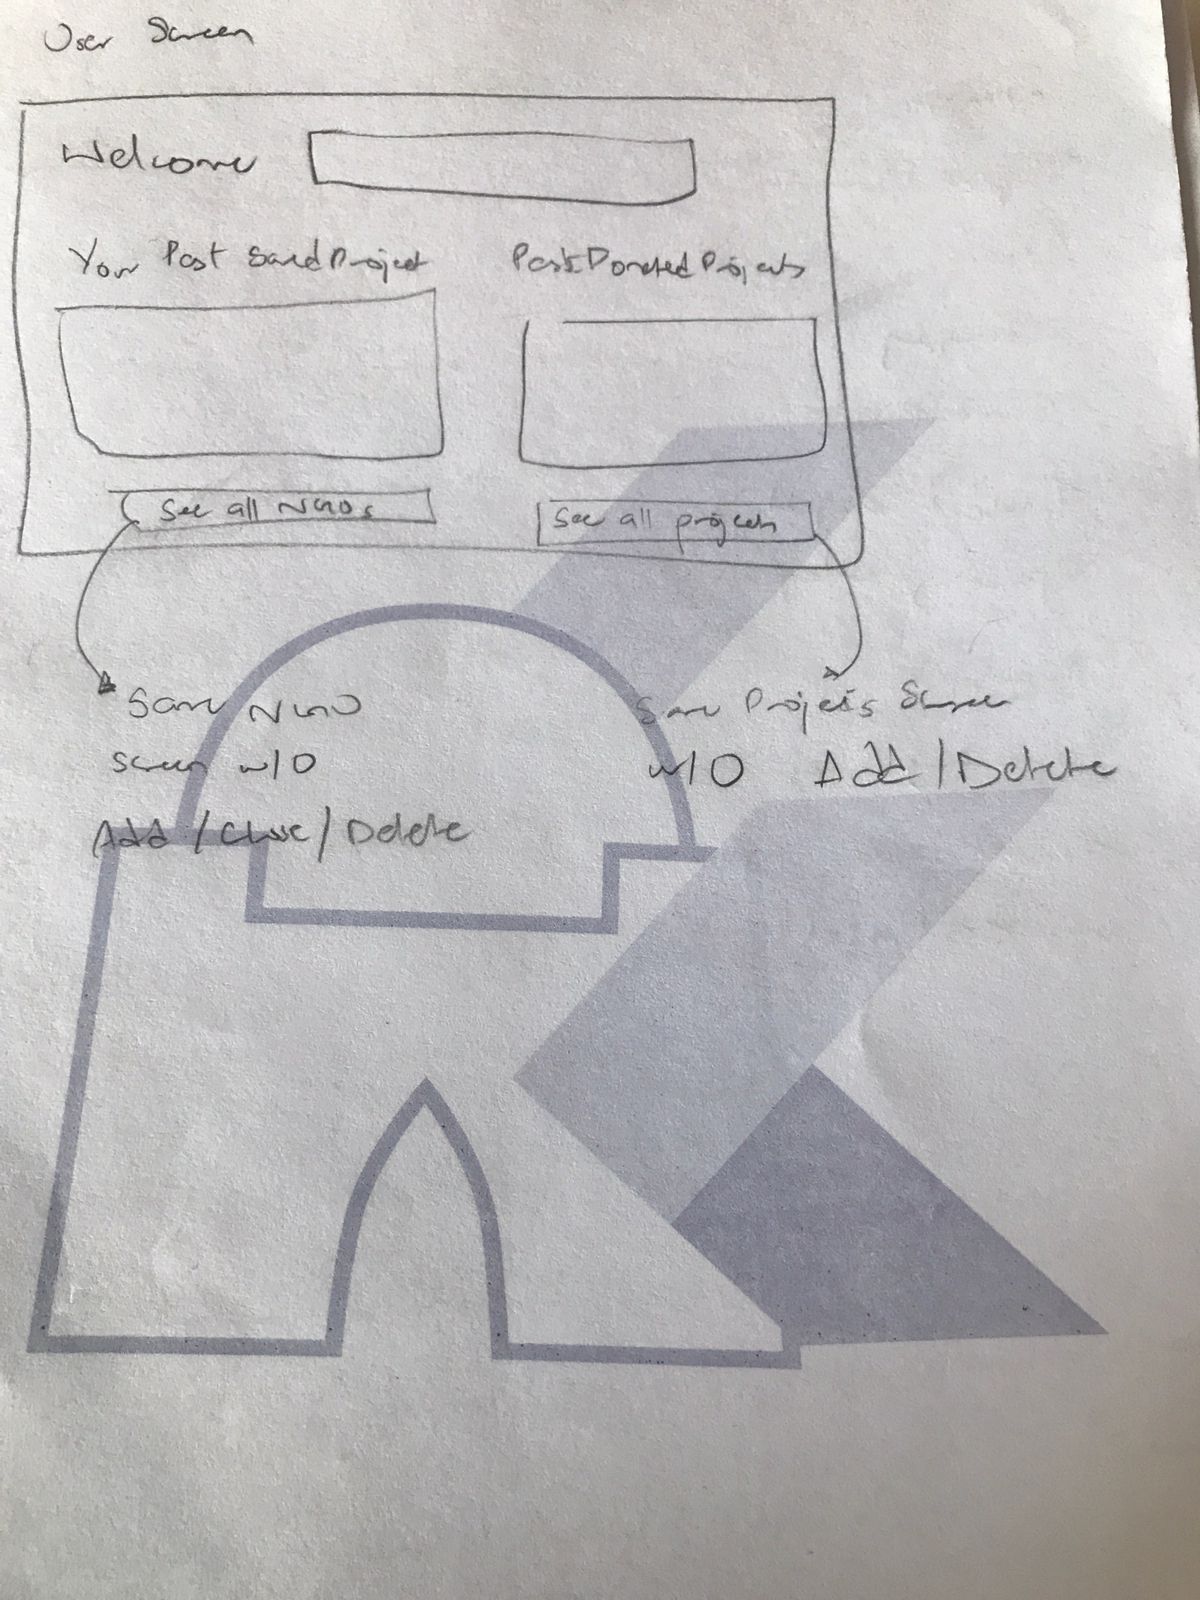 User Screen
Welcome
Your Past Saved Project
Past Donated Projects
See all NGOs
See all projects
Same NGO
screen w/o
Add / Close / Delete
Same Projects Screen
w/o Add / Delete